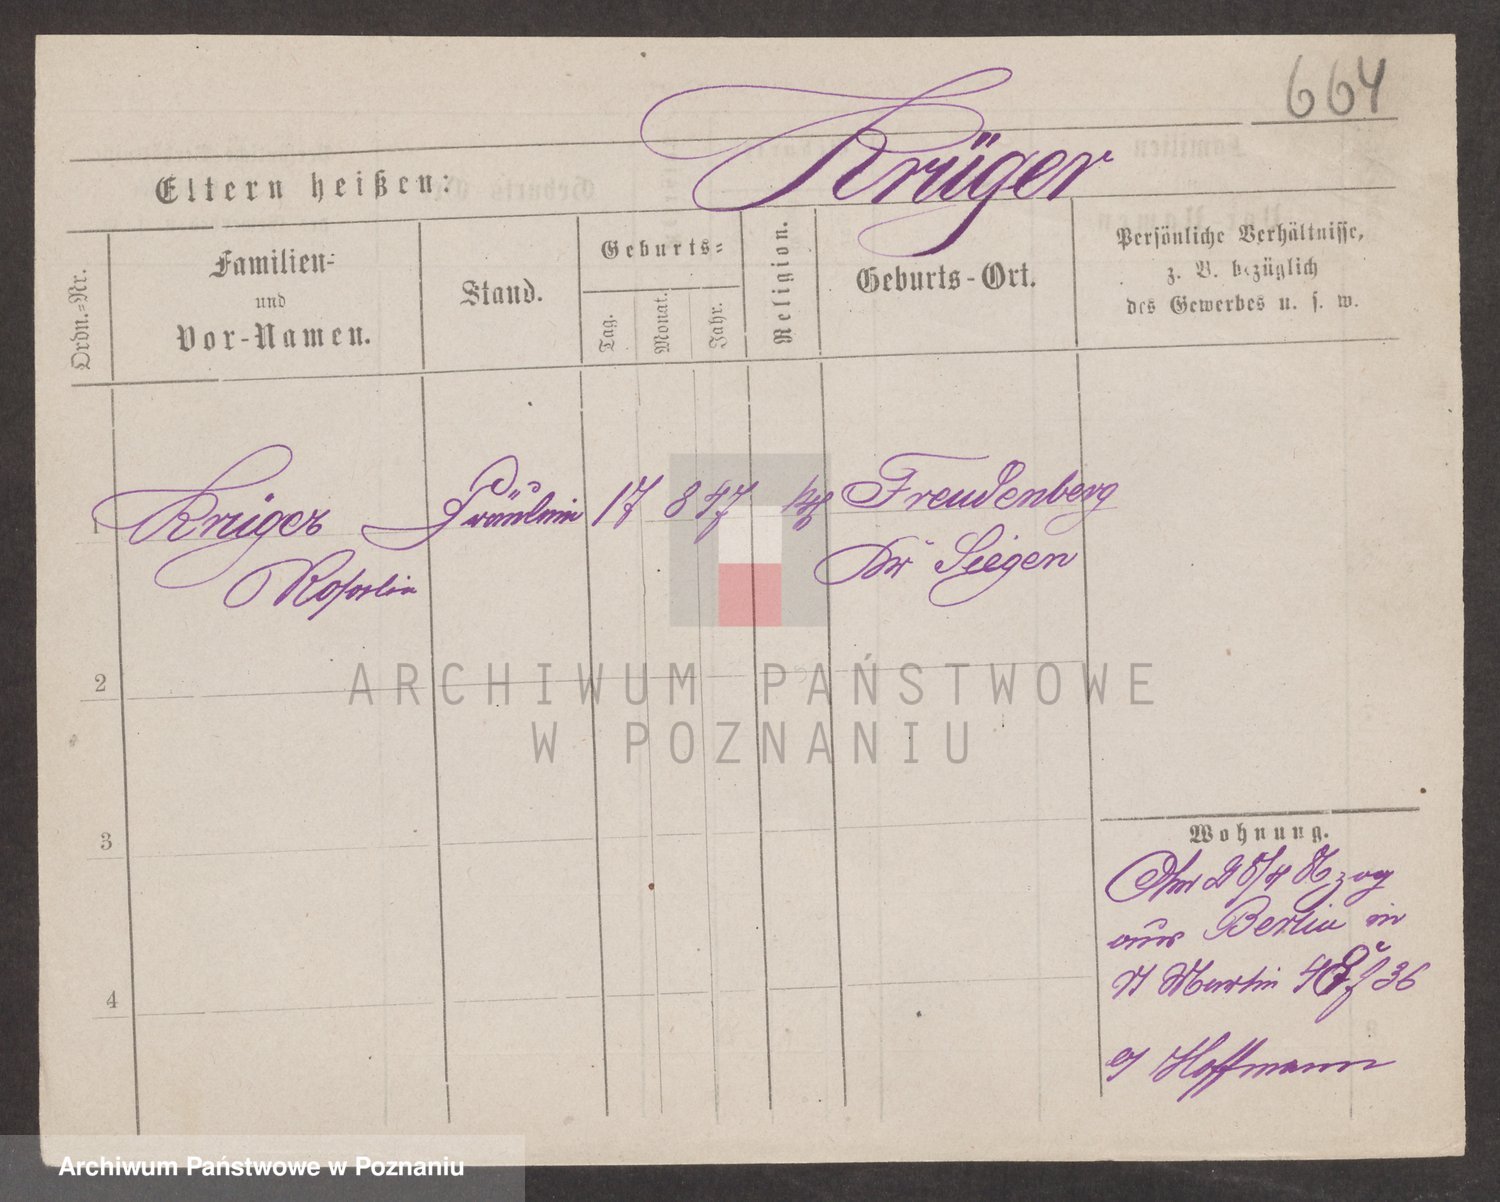 664
Krüger
Eltern heißen:
Ordn.-Nr.
Familien-
und
Vor-Namen.
Stand.
Geburts-
Tag.
Monat.
Jahr.
Religion.
Geburts-Ort.
Persönliche Verhältnisse,
z. B. bezüglich
des Gewerbes u. s. w.
1
Krüger Fräulein 17 8 47 kth Freudenberg
Rosalia Kr Siegen
2
3
4
Wohnung.
Berlin in
Martin 36
Hoffmann
ARCHIWUM PAŃSTWOWE
W POZNANIU
Archiwum Państwowe w Poznaniu